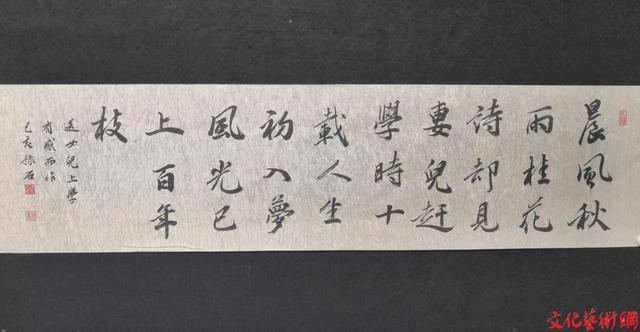 晨風秋
雨桂花
詩却見
妻兒趕
學時十
載人生
初入夢
風光已
上百年
枝
送女兒上學
有感而作
己亥 石
文化藝術網